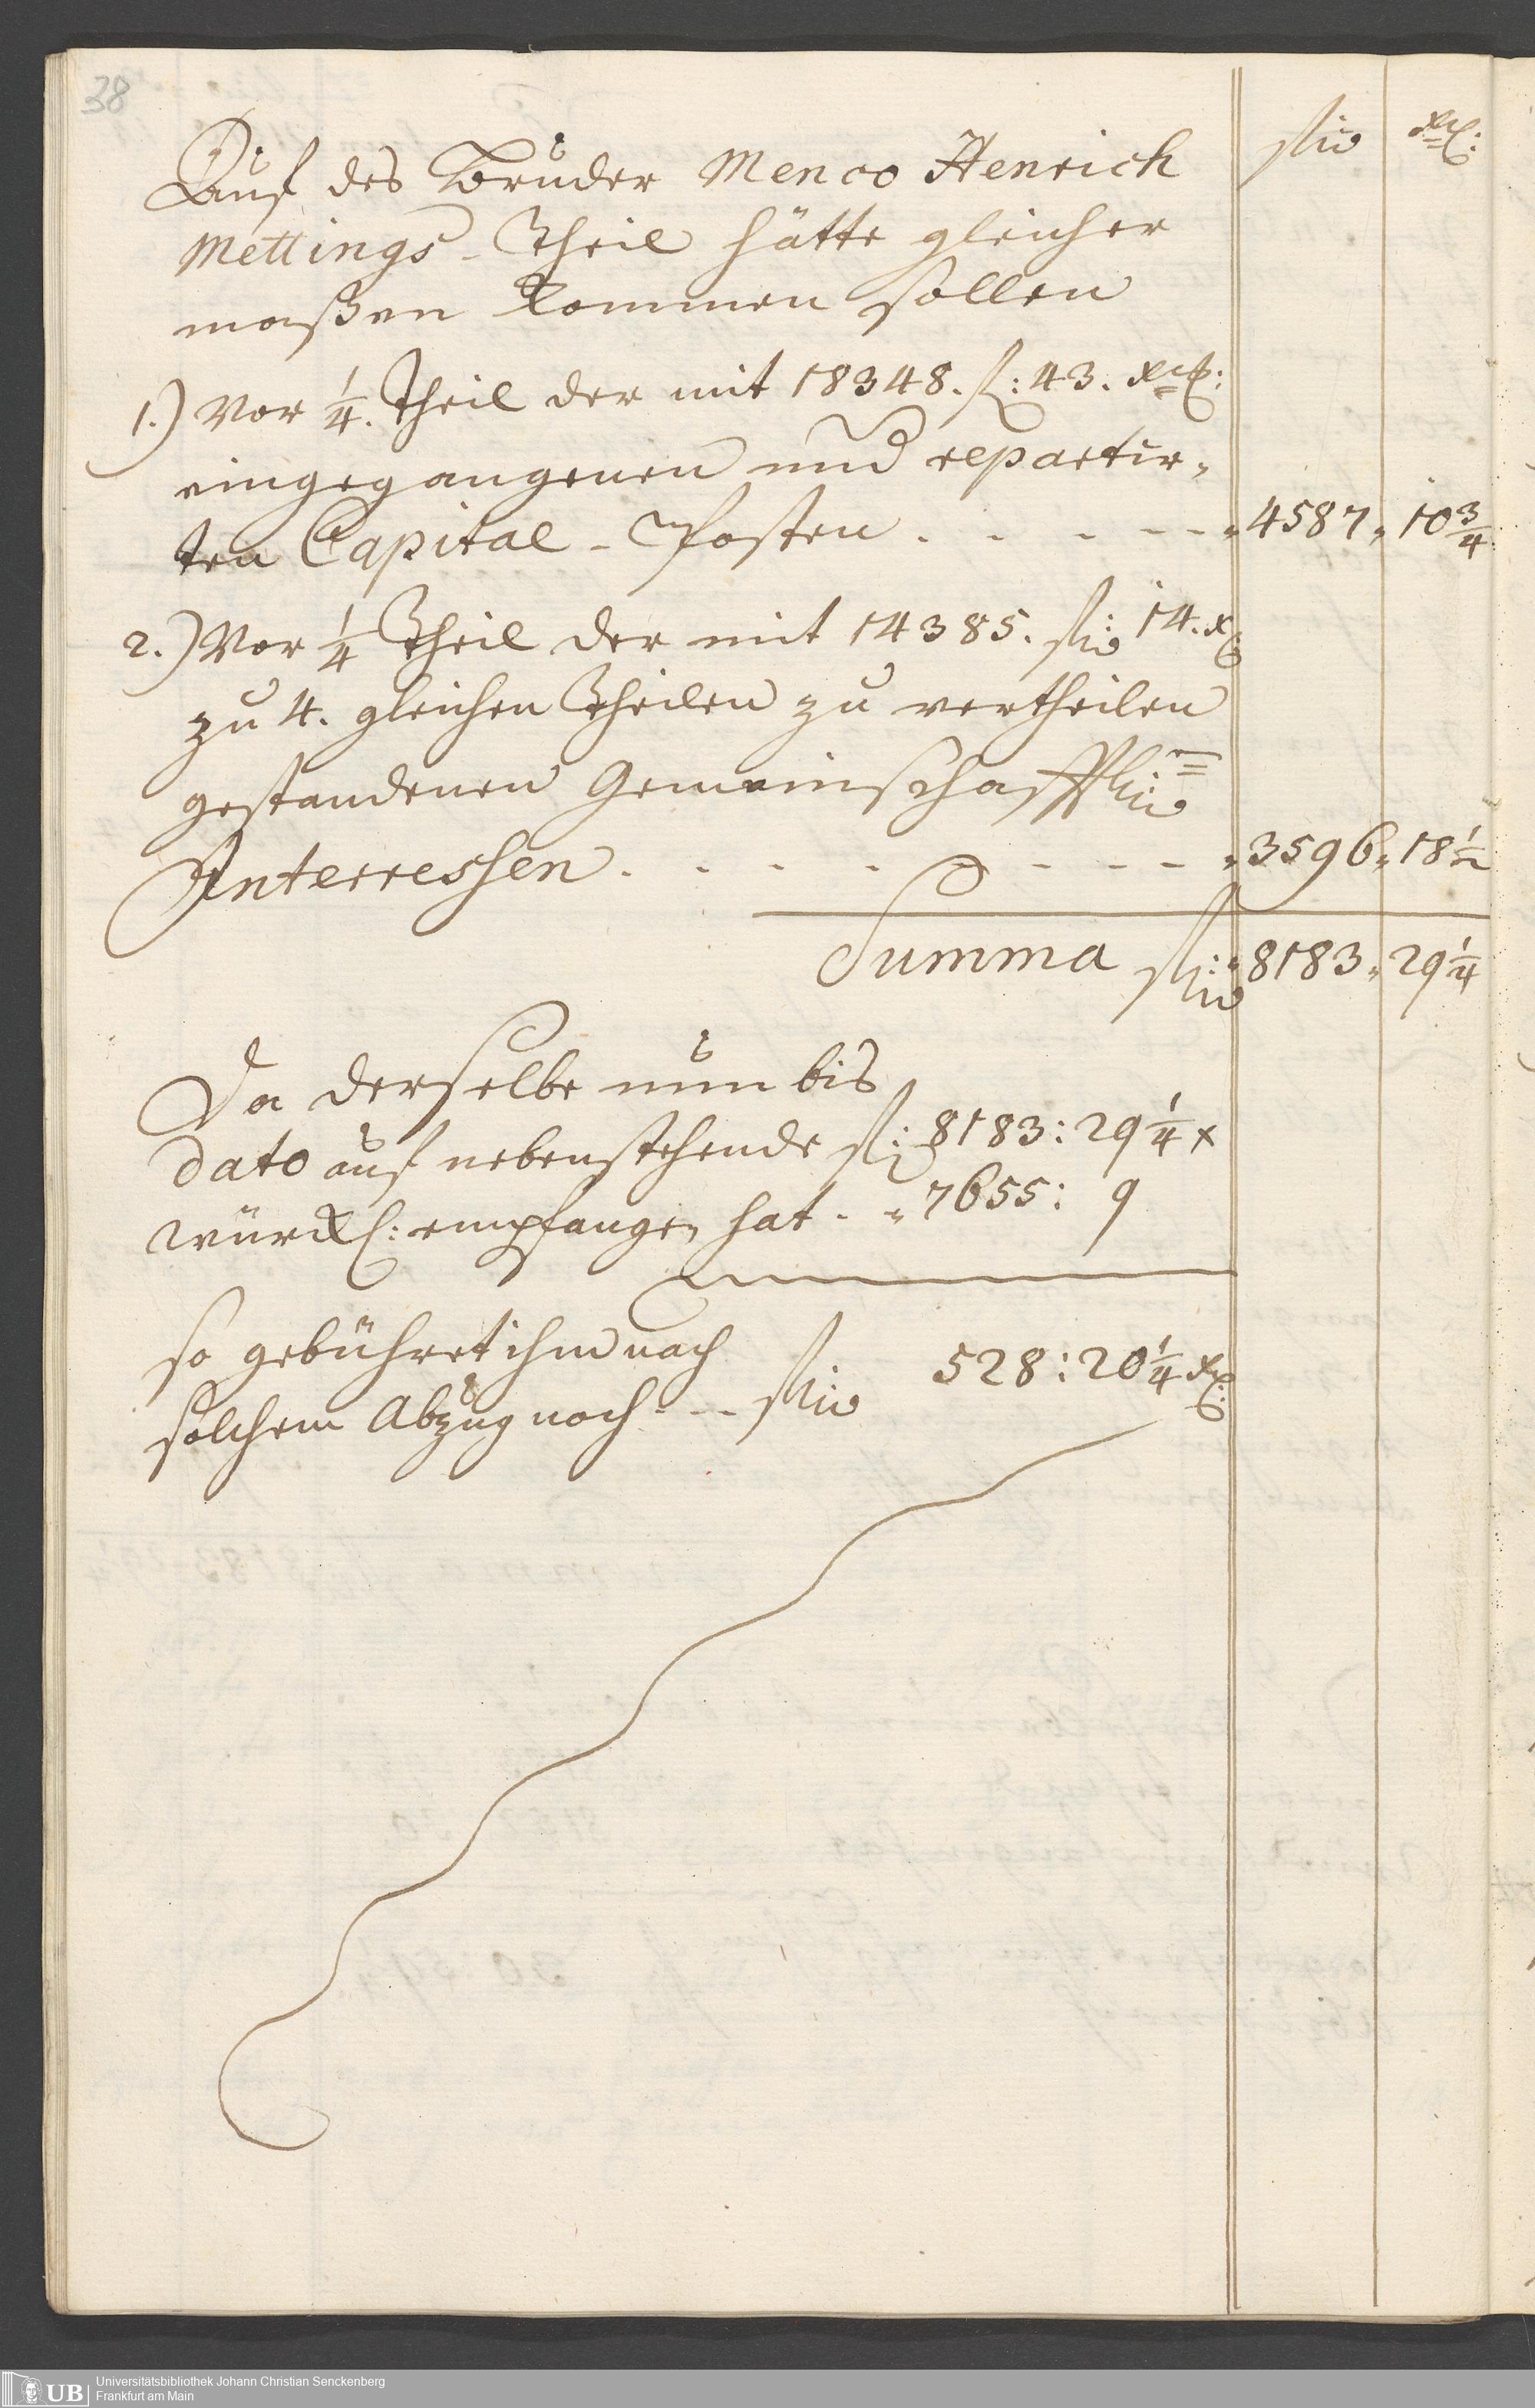 38
fl. xr:
Auf des Bruder Menco Henrich
Mettings-Theil hätte gleicher
maßen kommen sollen
1.) Vor 1/4. Theil der mit 18348. fl: 43. xr:
eingegangenen und repartir-
ten Capital-Posten . . . - - - „ 4587 „ 10 3/4
2.) Vor 1/4 Theil der mit 14385. fl: 14. xr:
zu 4. gleichen Theilen zu vertheilen
gestandenen Gemeinschafftl:
Interressen . . . . . - - - „ 3596 „ 18 1/2
Summa fl: „ 8183 „ 29 1/4
Da derselbe nun bis
dato auf nebenstehende fl: 8183: 29 1/4 x
würckl: empfangen hat - „ 7655: 9
so gebühret ihm nach
solchem Abzug noch - - - fl: 528: 20 1/4 xr:
UB
Universitätsbibliothek Johann Christian Senckenberg
Frankfurt am Main